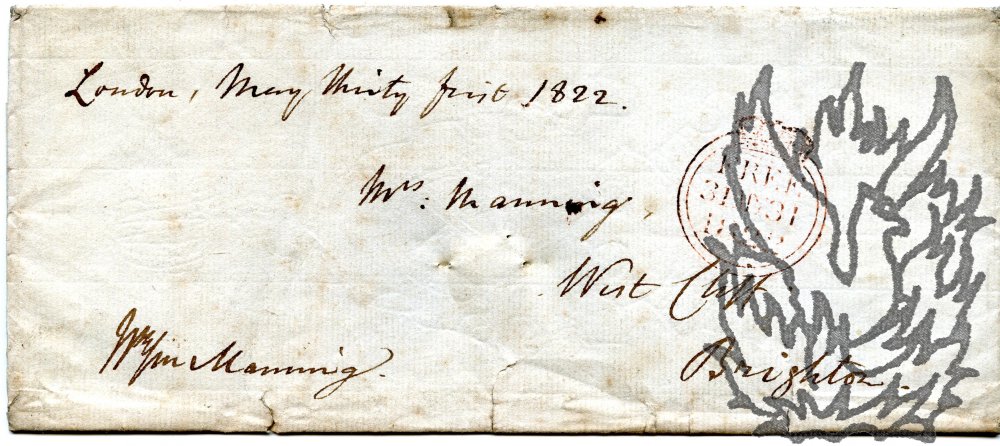 London, May thirty first 1822.
Mrs. Manning,
FREE
31 31
1822
West Cliff
Wm Manning.
Brighton.